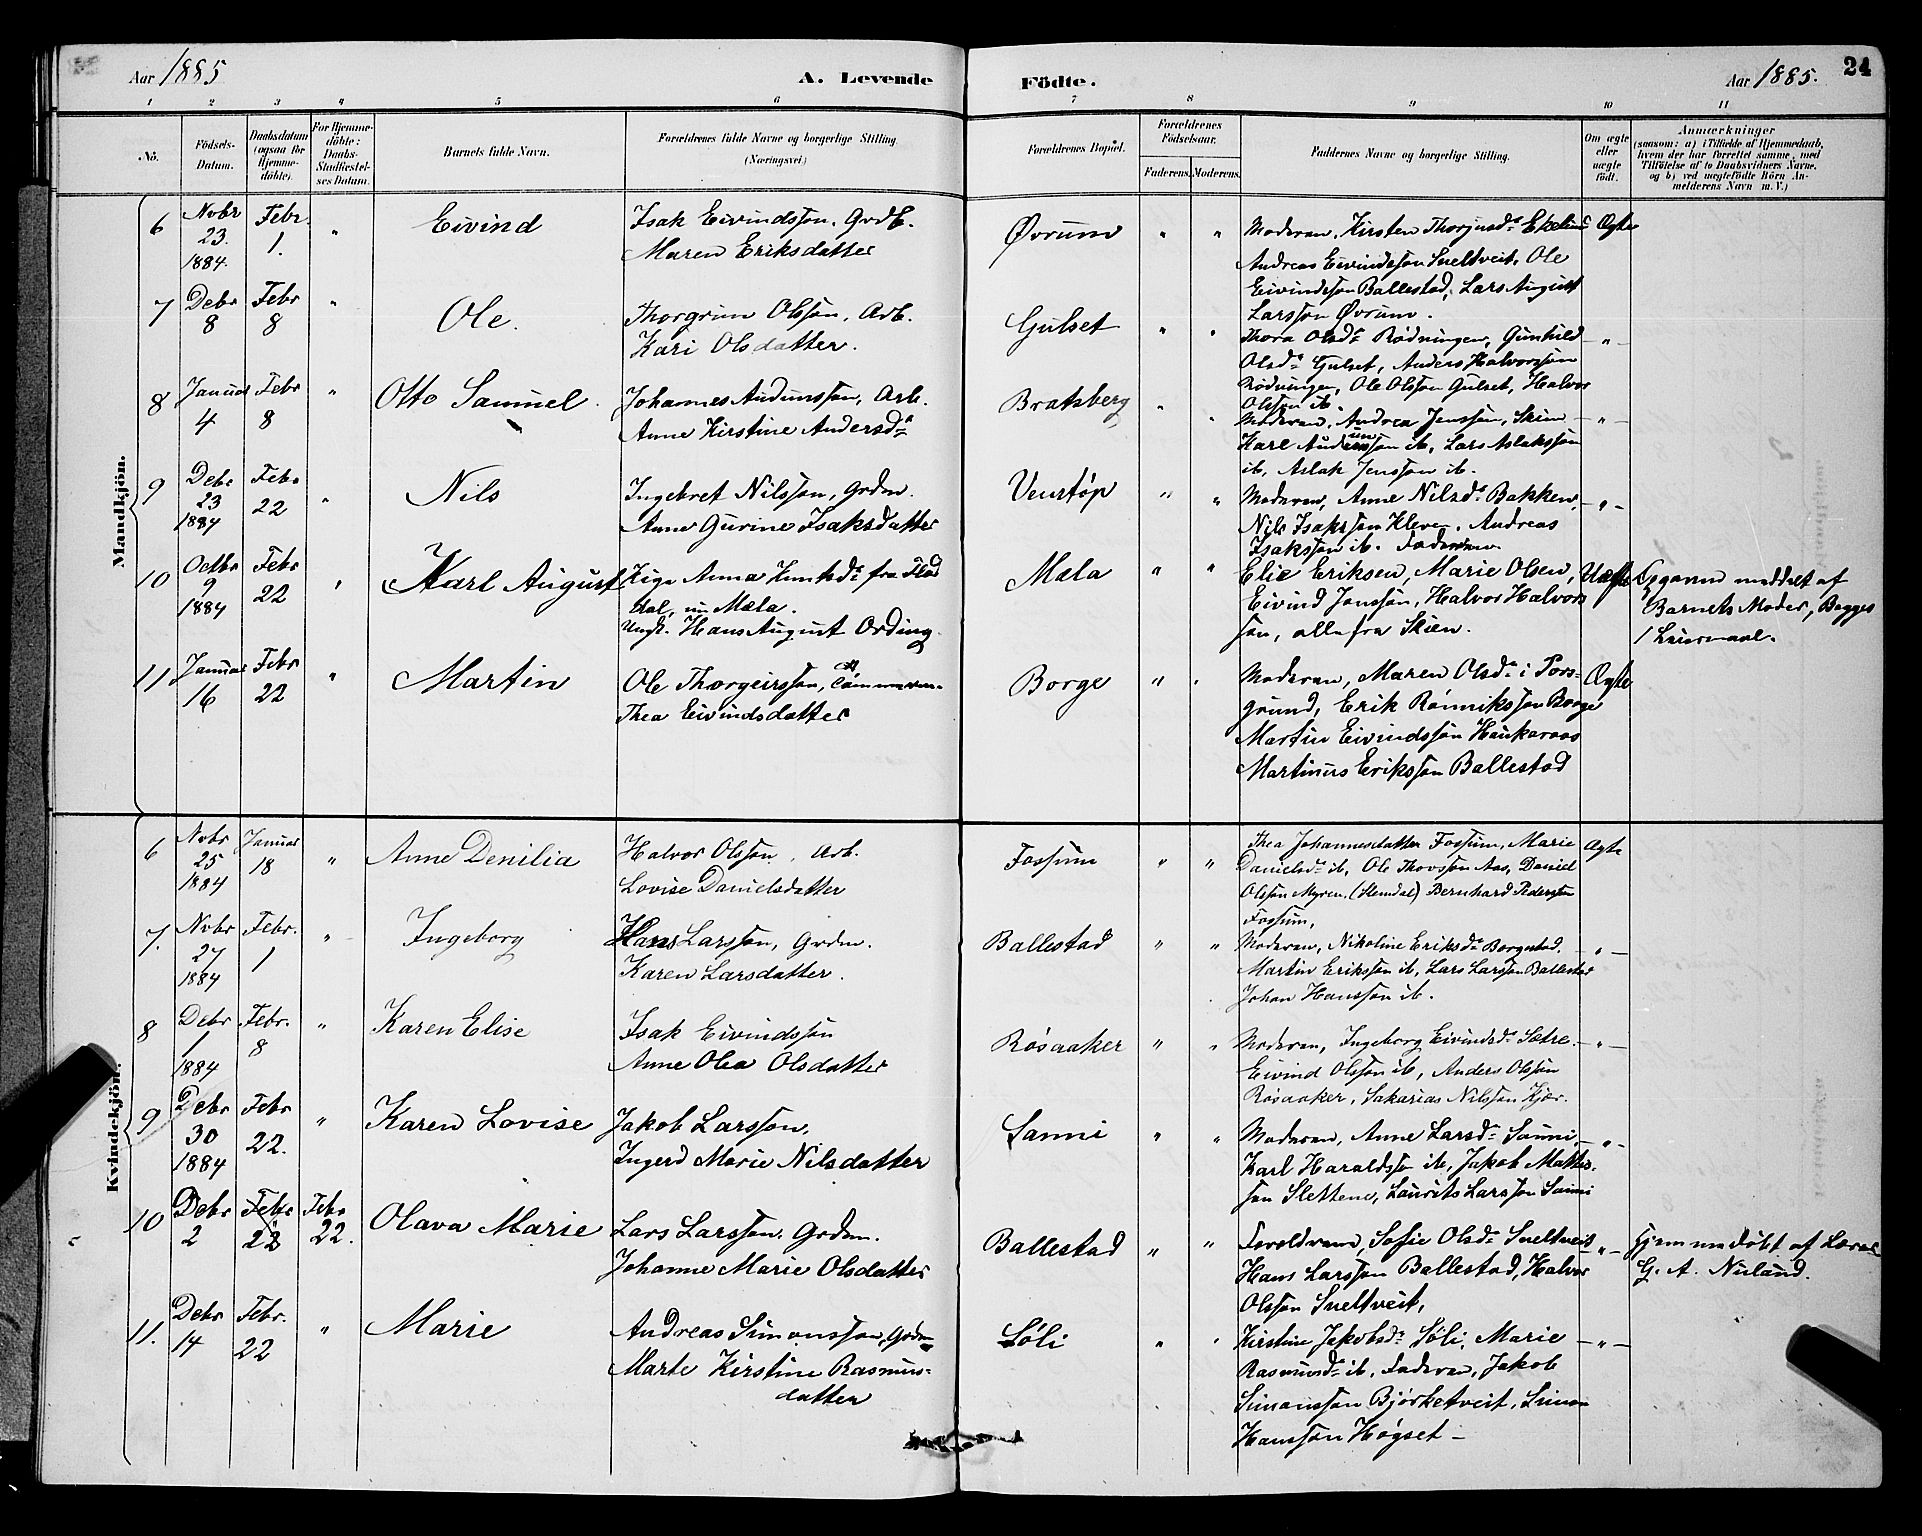 Aar 1885
A. Levende
Födte.
Aar 1885.
24
1 2 3 4 5 6 7 8 9 10 11
No.
Födsels-Datum.
Daabsdatum (ogsaa for Hjemme-döbte).
For Hjemme-döbte: Daabs-Stadfæstel-ses Datum.
Barnets fulde Navn.
Forældrenes fulde Navne og borgerlige Stilling.
(Næringsvei.)
Forældrenes Bopæl.
Forældrenes Födselsaar.
Faderens. Moderens.
Faddernes Navne og borgerlige Stilling.
Om ægte eller uægte födt.
Anmærkninger
(saasom: a) i Tilfælde af Hjemmedaab,
hvem der har forrettet samme, med
Tilföielse af to Daabsvidners Navne,
og b) ved uægtefödte Börn An-
melderens Navn m. V.)
Mandkjön.
6 Novbr 23. 1884. Febr. 1. " Eivind
Isak Eivindssøn, Grdb.
Maren Eriksdatter
Øvrum " "
Moderen, Kirsten Thorjusd. Ægte
Andreas Eivindssøn Sneltveit, Ole
Eivindssøn Ballestad, Lars August
Larssøn Øvrum.
7 Debr 8 Febr 8 " Ole.
Thorgrim Olssøn, Arb.
Kari Olsdatter.
Gulset " "
Thora Olsd. Rødningen, Gunhild - " -
Olsd. Gulset, Anders Halvorssøn
Rødningen, Ole Olssøn Gulset, Halvor
Olssøn ib.
8 Januar 4 Febr 8 " Otto Samuel.
Johannes Audunssøn, Arb.
Anne Kirstine Andersd.
Bratsberg " "
Moderen, Andrea Jenssøn, Skien - " -
Karl Audunssøn ib, Lars Aslakssøn
ib, Aslak Jenssøn ib.
9 Debr 23 1884 Febr 22 " Nils
Ingebret Nilssøn, Grdm.
Anne Gurine Isaksdatter
Venstøp " "
Moderen, Anne Nilsd. Bakken, - " -
Nils Isakssøn Kleven, Andreas
Isakssøn ib. Faderen.
10 Octbr 9 1884 Febr 22 " Karl August
Pige Anna Knutsd. fra
dal, nu Mæla.
Ungk. Hans August Ording.
Mæla " "
Elie Eriksen, Marie Olsen, Uægte
Eivind Jonssøn, Halvor Halvors
søn, alle fra Skien.
Opgaven meddelt af
Barnets Moder, Begges
1 Leiermaal.
11 Januar 16 Febr 22 " Martin
Ole Thorgeirssøn, Tømmerm.
Thea Eivindsdatter
Borge " "
Moderen, Maren Olsd. i Pors- Ægte
grund, Erik Rønnikssøn Borge
Martin Eivindssøn Haukeraas
Martinus Erikssøn Ballestad
Kvindekjön.
6 Novbr 25 1884 Januar 18 " Anne Denilia
Halvor Olssøn, Arb.
Lovise Danielsdatter
Fossum " "
Thea Johannesdatter Fossum, Marie Ægte
Danielsd. ib, Ole Thovssøn Aas, Daniel
Olssøn Myren, (Slemdal) Bernhard Pederssøn
Fossum,
7. Novbr 27 1884 Febr. 1 " Ingeborg
Hans Larssøn, Grdm.
Karen Larsdatter.
Ballestad " "
Moderen, Nikoline Eriksd. Borgestad. - " -
Martin Erikssøn ib, Lars Larssøn Ballestad
Johan Hanssøn ib.
8 Debr. 1 1884 Febr. 8 " Karen Elise
Isak Eivindssøn
Anne Olea Olsdatter
Røsaaker " "
Moderen, Ingeborg Eivindsd. Sætre. - " -
Eivind Olssøn ib, Anders Olssøn
Røsaaker, Sakarias Nilssøn Kjær.
9 Debr 30 1884 Febr 22. " Karen Lovise
Jakob Larssøn,
Ingerd Marie Nilsdatter
Sanni " "
Moderen, Anne Larsd. Sanni, - " -
Karl Haraldssøn ib, Jakob Mathis-
søn Slettene, Laurits Larssøn Sanni
10 Debr 2 Febr 22 Febr 22. Olava Marie
Lars Larssøn, Grdm.
Johanne Marie Olsdatter
Ballestad " "
Forældrene, Sofie Olsd. Sneltveit - " -
Hans Larssøn Ballestad, Halvor
Olssøn Sneltveit,
Hjemmedøbt af Lærer
G. A. Nuland.
11. Debr 14 Febr. 22 " Marie
Andreas Simonssøn, Grdm
Marte Kirstine Rasmus-
datter
Løli " "
Kirstine Jakobsd. Løli, Marie - " -
Rasmusd. ib, Faderen, Jakob
Simonssøn Bjørketveit, Simon
Hanssøn Høgset -